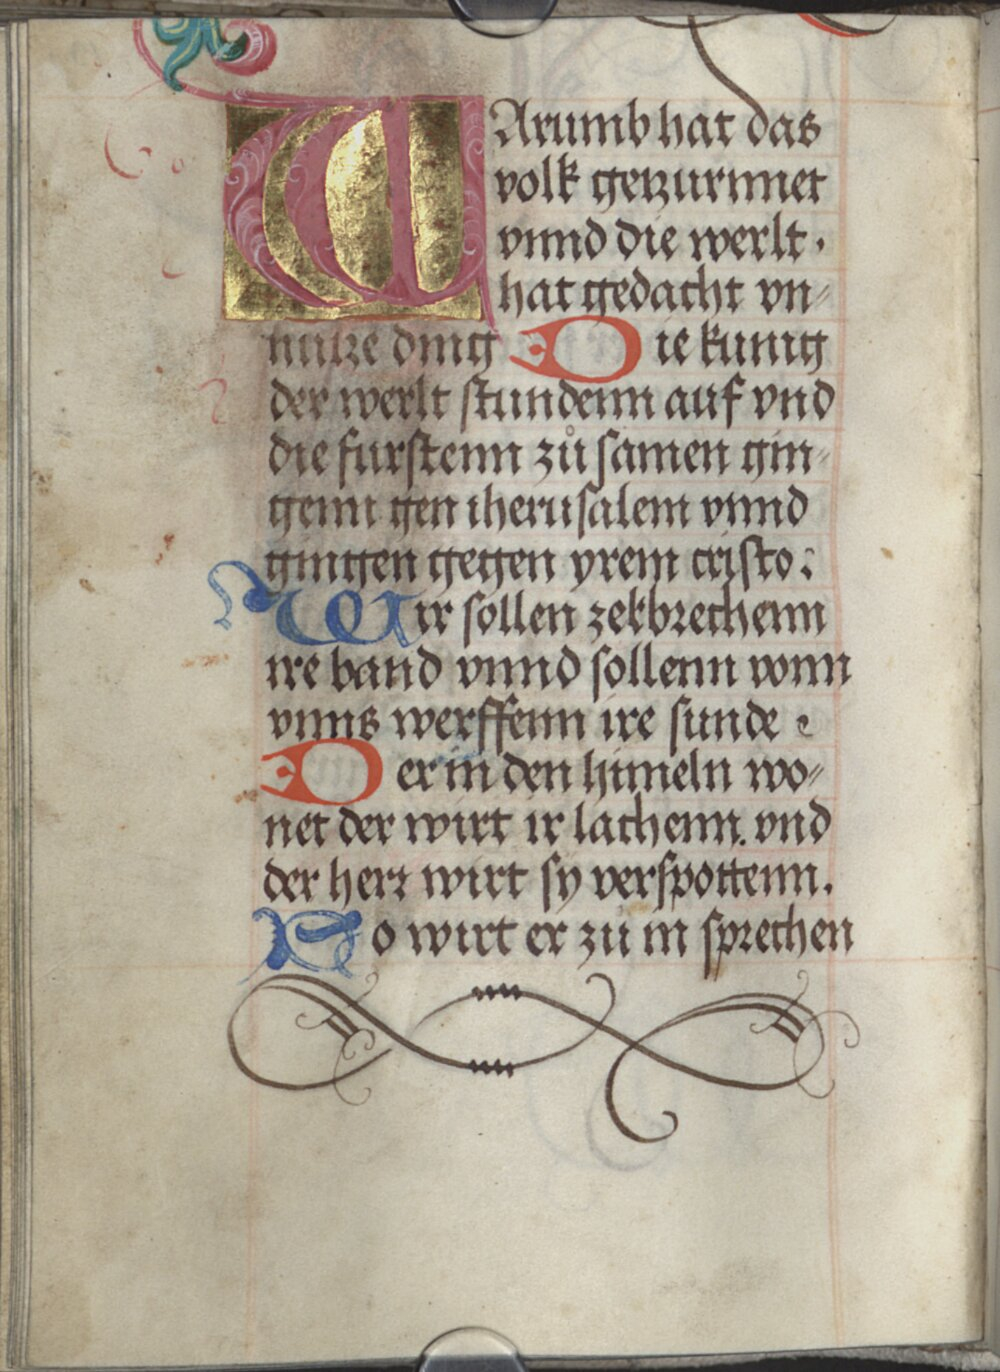 WArumb hat das
volk getzurnnet
vnnd die werlt.
hat gedacht vn-
nutze ding Die kunig
der werlt stundenn auf vnd
die furstenn zů samen gin-
genn gen iherusalem vnnd
gingen gegen yrem cristo:
Wir sollen zerbrechenn
ire band vnnd sollenn vonn
vnns werffenn ire sunde
Der in den himeln wo-
net der wirt ir lachenn. vnd
der herr wirt sy verspottenn.
So wirt er zu in sprechen